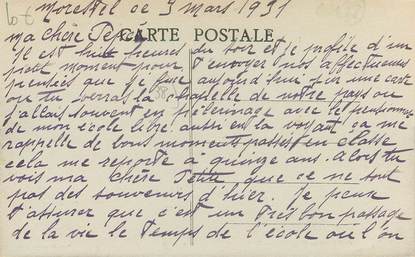 Morestel ce 3 mars 1931
CARTE POSTALE
Ma chère
Il est huit heures du soir et je profite d'un
petit moment pour t'envoyer nos affectueuses
pensées que je fais aujourd'hui par une carte
ou tu verras la chapelle de notre pays ou
j'allais souvent en pélerinage avec le pensionnat
de mon école libre. aussi en la voyant ça me
rappelle de bons moments passés en classe
cela me reporte à quinze ans. Alors tu
vois ma chère petite que ce ne sont
pas des souvenirs d'hier. Je peux
t'assurer que c'est un très bon passage
de la vie le temps de l'école où l'on